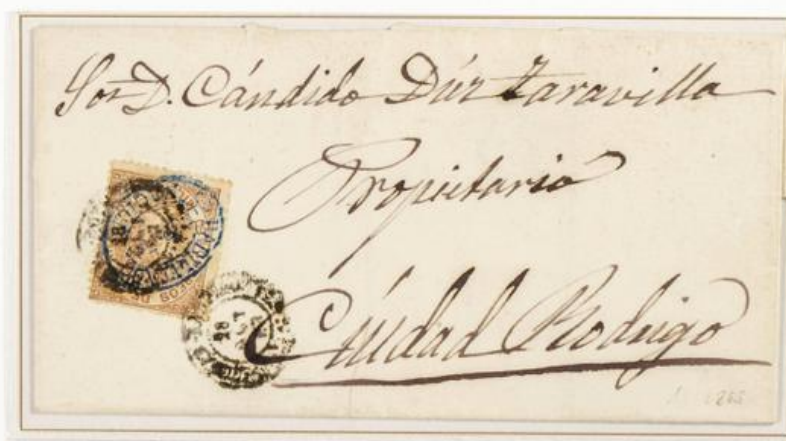 Sor D. Cándido Díaz Taravilla
Propietario
Ciudad Rodrigo